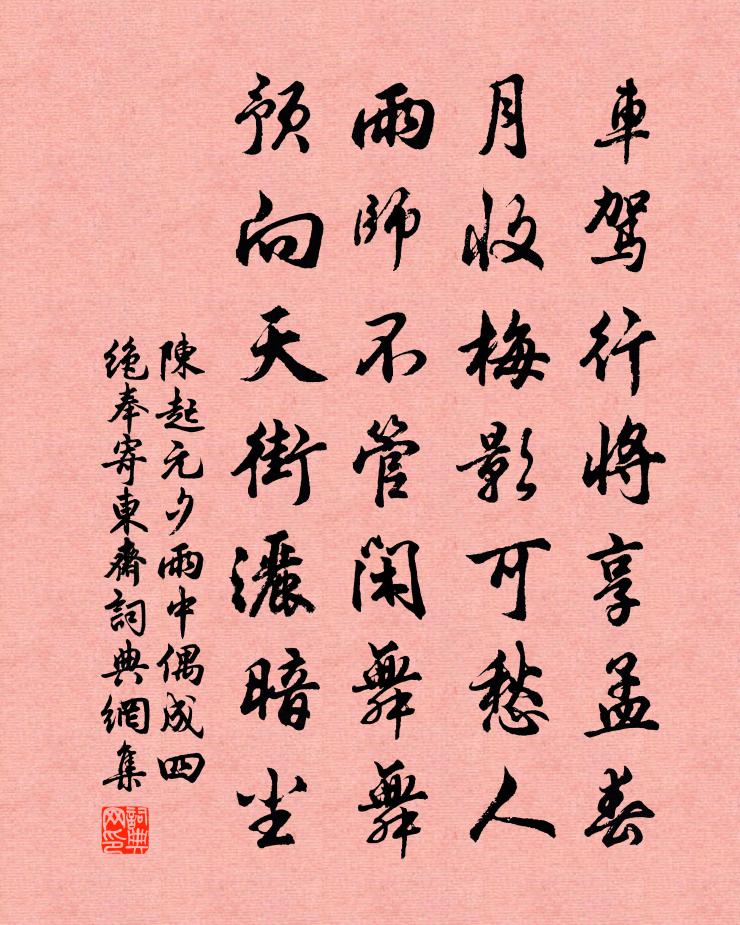 車駕行將享孟春
月收梅影可愁人
雨師不管閑舞舞
預向天街灑暗尘
陳起元夕雨中偶成四
絶奉寄東齋詞典網集
詞典网印